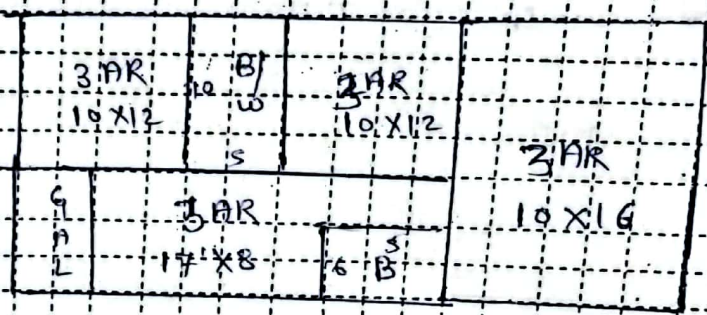 3 AR
10 X12
10
B/W
5
3 AR
10 X12
3 AR
10 X16
GAL
3 AR
17' X8
5
6 B